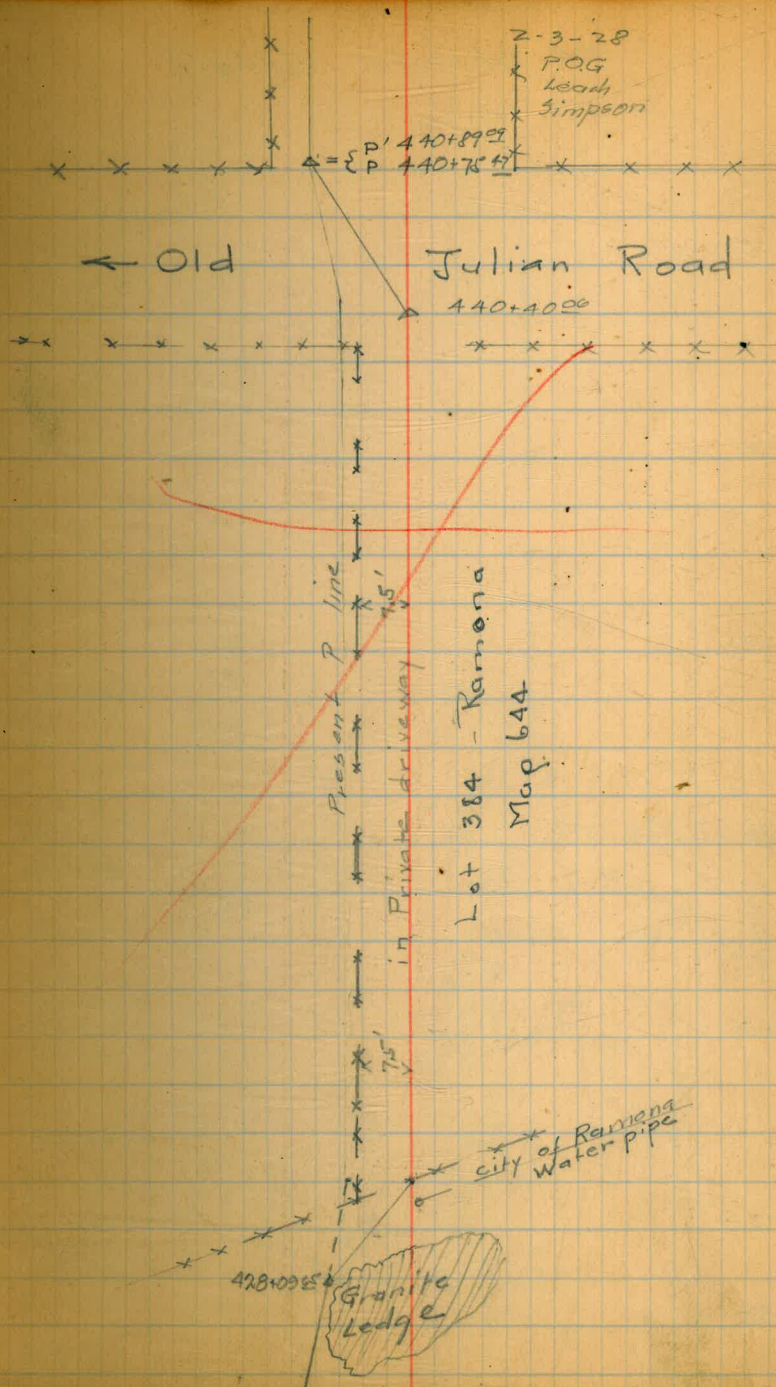 2-3-28
P.O.G
Leach
Simpson
= { P' 440+89 09
P 440+75 47
← Old Julian Road
440+40 06
Present P line
7.5'
in Private driveway
Lot 384 - Ramona
Map 644
7.5'
City of Ramona
Water pipe
428+09
Granite
Ledge